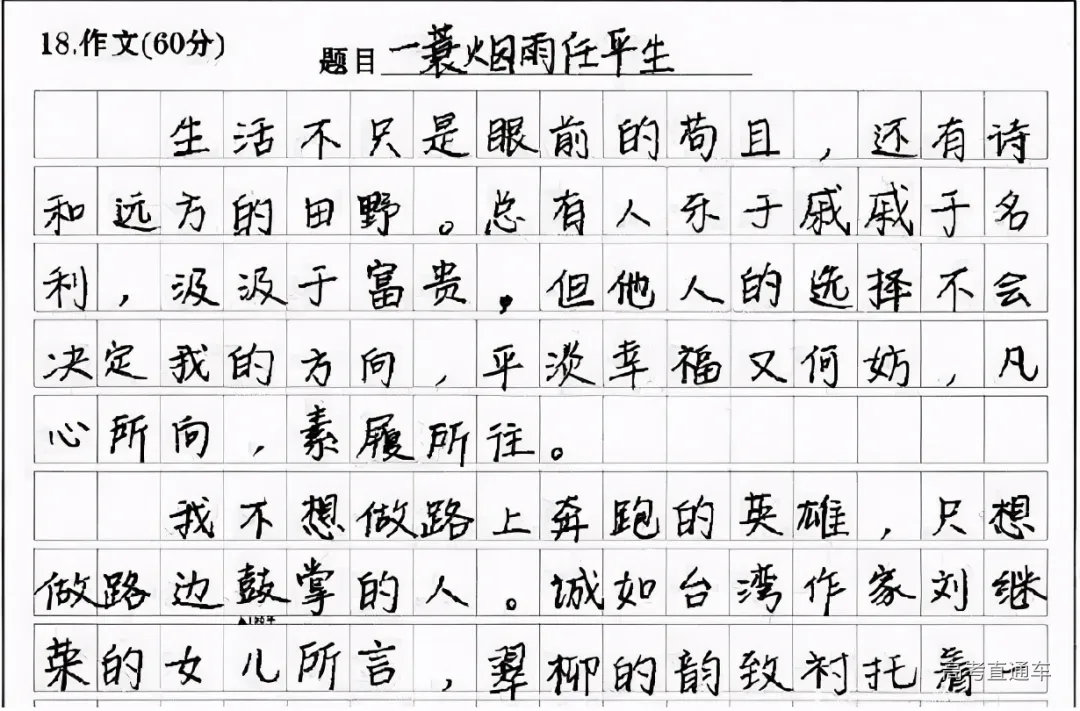 18.作文(60分)
题目 一蓑烟雨任平生
生活不只是眼前的苟且，还有诗
和远方的田野。总有人乐于戚戚于名
利，汲汲于富贵，但他人的选择不会
决定我的方向，平淡幸福又何妨，凡
心所向，素履所往。
我不想做路上奔跑的英雄，只想
做路边鼓掌的人。诚如台湾作家刘继
▲120字
荣的女儿所言，翠柳的韵致衬托着
高考直通车